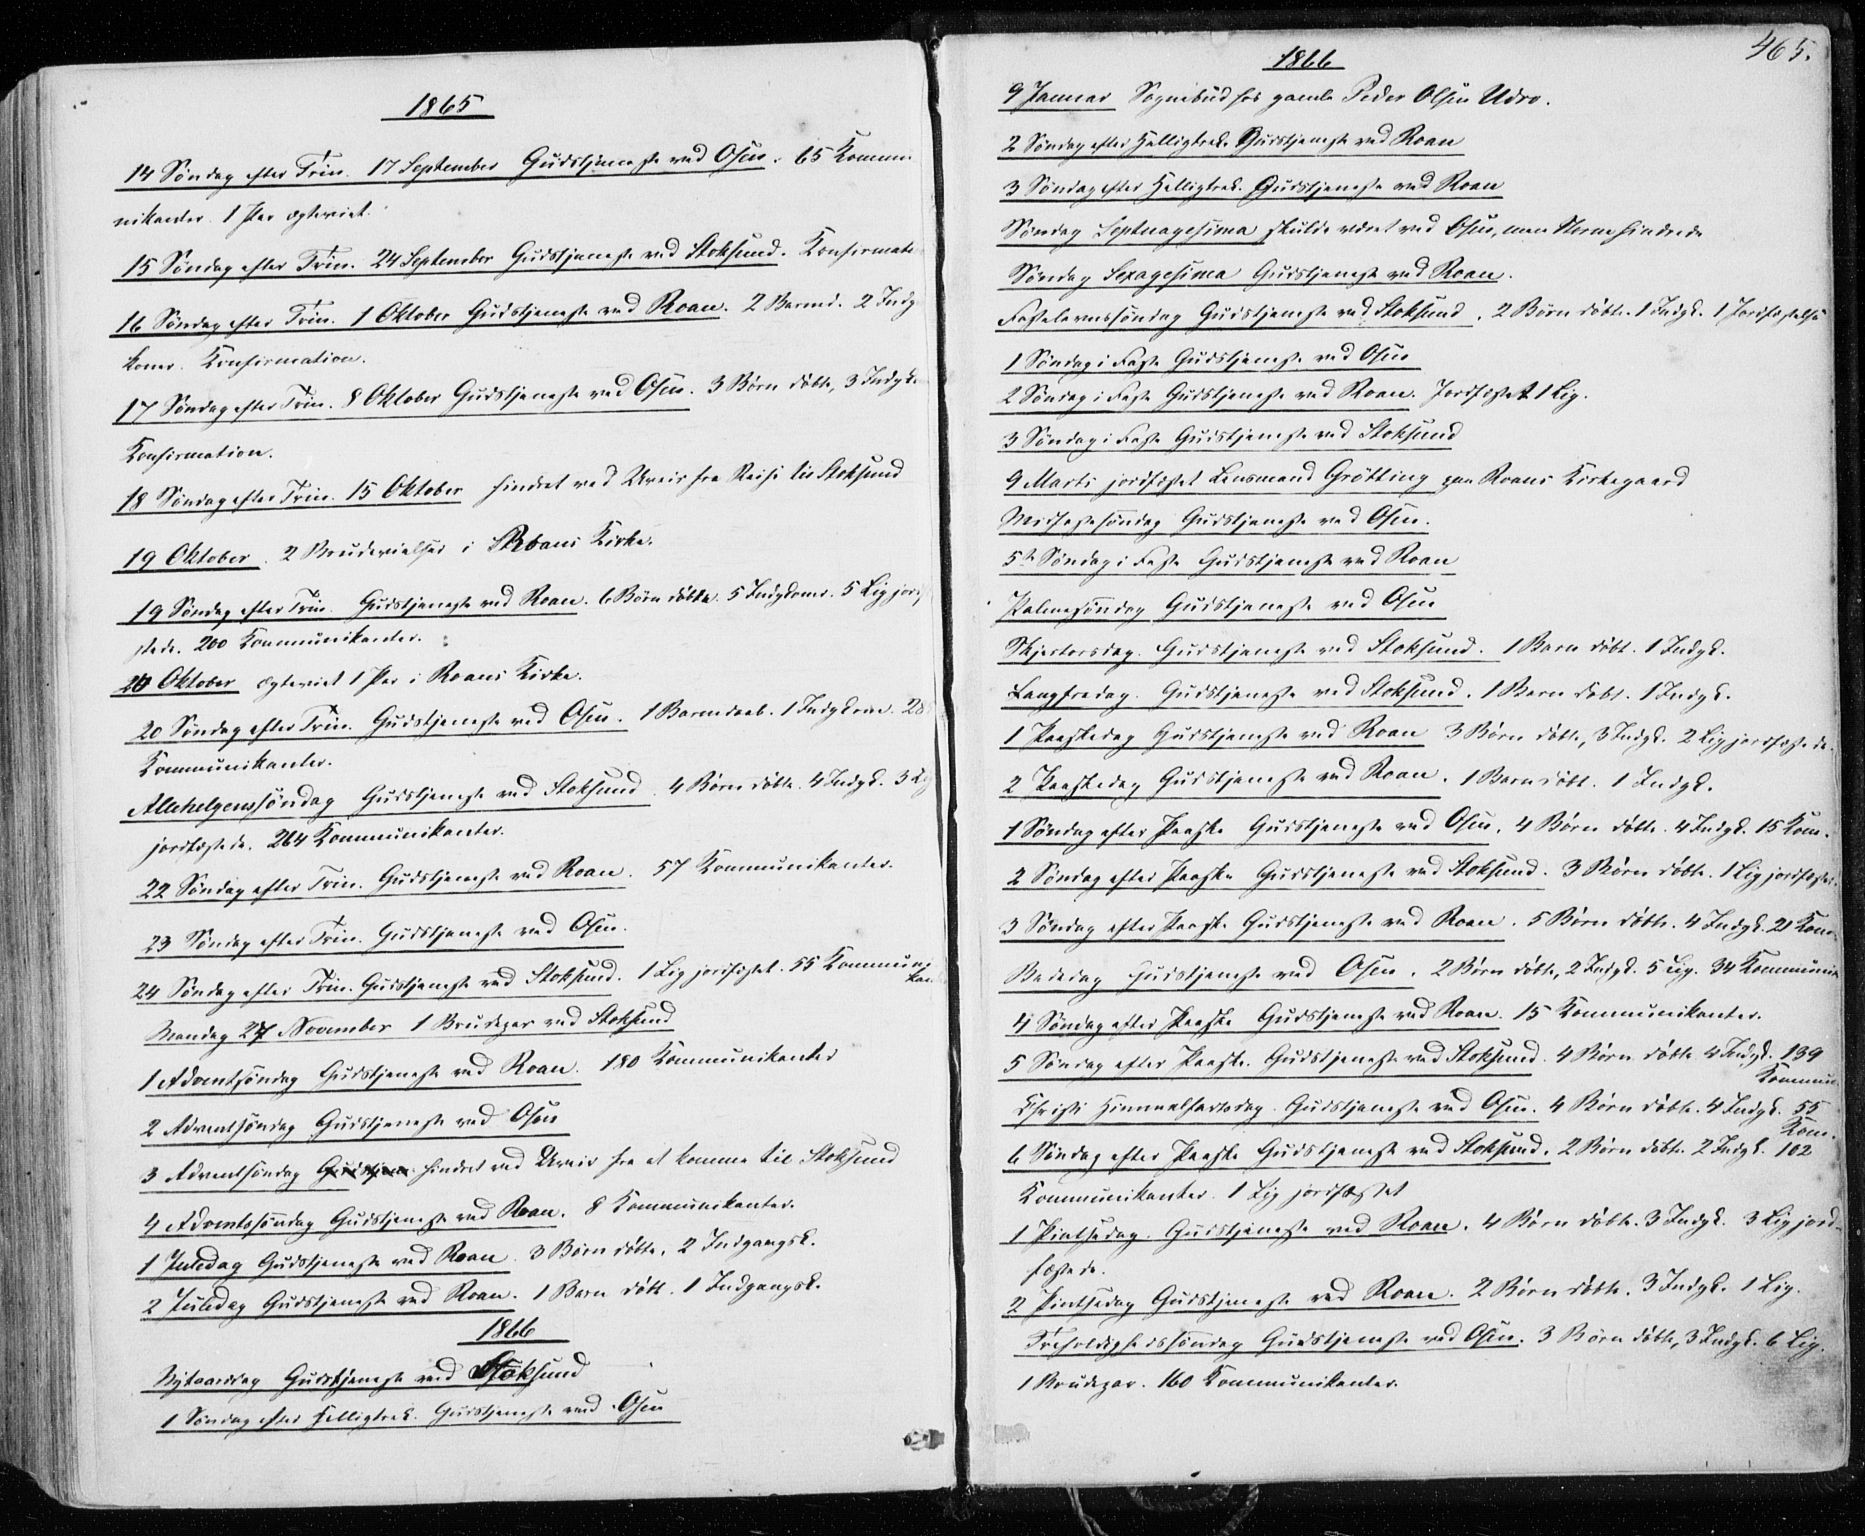 1865
14 Søndag efter Trin. 17 September Gudstjeneste ved Osen. 65 Kommu-
nikanter. 1 Par ægteviet.
15 Søndag efter Trin. 24 September Gudstjeneste ved Stoksund. Konfirmati
16 Søndag efter Trin. 1 Oktober Gudstjeneste ved Roan. 2 Barned. 2 Indg
koner. Konfirmation.
17 Søndag efter Trin. 8 Oktober Gudstjeneste ved Osen. 3 Børn døbte, 3 Indgk.
Konfirmation.
18 Søndag efter Trin. 15 Oktober hindret ved Uveir fra Reise til Stoksund
19 Oktober. 2 Brudevielser i Roans Kirke.
19 Søndag efter Trin. Gudstjeneste ved Roan. 6 Børn døbte. 5 Indgkoner. 5 Lig jordf
stede. 200 Kommunikanter.
Oktober ægteviet 1 Par i Roans Kirke.
20 Søndag efter Trin. Gudstjeneste ved Osen. 1 Barnedaab. 1 Indgkone. 28
Kommunikanter.
Allehelgenssøndag Gudstjeneste ved Stoksund. 4 Børn døbte. 4 Indgk. 3 Lig
jordfæstede. 264 Kommunikanter.
22 Søndag efter Trin. Gudstjeneste ved Roan. 57 Kommunikanter.
23 Søndag efter Trin. Gudstjeneste ved Osen.
24 Søndag efter Trin. Gudstjeneste ved Stoksund. 1 Lig jordfæstet. 55 Kommuni
kan
Mandag 27 November 1 Brudepar ved Stoksund
1 Adventsøndag Gudstjeneste ved Roan. 180 Kommunikanter
2 Adventsøndag Gudstjeneste ved Osen
3 Adventsøndag Gudstjen hindret ved Uveir fra at komme til Stoksund
4 Adventssøndag Gudstjeneste ved Roan. 8 Kommunikanter.
1 Juledag Gudstjeneste ved Roan. 3 Børn døbte. 2 Indgangsk.
2 Juledag Gudstjeneste ved Roan. 1 Barn døbt. 1 Indgangsk.
1866
Nytaarsdag Gudstjeneste ved Stoksund
1 Søndag efter Helligtrek. Gudstjeneste ved Osen
465.
1866
9 Januar Sognebud hos gamle Peder Olsen Udro.
2 Søndag efter Helligtrek. Gudstjeneste ved Roan
3 Søndag efter Helligtrek. Gudstjeneste ved Roan
Søndag Septuagesima skulde været ved Osen, men Storm hindrede
Søndag Sexagesima Gudstjeneste ved Roan.
Fastelavnssøndag Gudstjeneste ved Stoksund. 2 Børn døbte. 1 Indgk. 1 Jordfæstelse
1 Søndag i Faste Gudstjeneste ved Osen
2 Søndag i Faste Gudstjeneste ved Roan. Jordfæstet 1 Lig.
3 Søndag i Faste Gudstjeneste ved Stoksund
9 Marts jordfæstet Lensmand Grøtting paa Roans Kirkegaard
Midfastesøndag Gudstjeneste ved Osen.
5te Søndag i Faste Gudstjeneste ved Roan
Palmesøndag Gudstjeneste ved Osen
Skjertorsdag. Gudstjeneste ved Stoksund. 1 Barn døbt. 1 Indgk.
Langfredag. Gudstjeneste ved Stoksund. 1 Barn døbt. 1 Indgk.
1 Paaskedag Gudstjeneste ved Roan 3 Børn døbte, 3 Indgk. 2 Lig jordfæstede.
2 Paaskedag Gudstjeneste ved Roan. 1 Barn døbt. 1 Indgk.
1 Søndag efter Paaske Gudstjeneste ved Osen. 4 Børn døbte. 4 Indgk. 15 Kom.
2 Søndag efter Paaske Gudstjeneste ved Stoksund. 3 Børn døbte. 1 Lig jordfæstet.
3 Søndag efter Paaske Gudstjeneste ved Roan. 5 Børn døbte. 4 Indgk. 21 Kom
Bededag Gudstjeneste ved Osen. 2 Børn døbte, 2 Indgk. 5 Lig. 34 Kommunik
4 Søndag efter Paaske Gudstjeneste ved Roan. 15 Kommunikanter.
5 Søndag efter Paaske. Gudstjeneste ved Stoksund. 4 Børn døbte 4 Indgk. 139
Kommun.
Christi Himmelfartsdag. Gudstjeneste ved Osen. 4 Børn døbte. 4 Indgk. 55
Kom.
6 Søndag efter Paaske Gudstjeneste ved Stoksund. 2 Børn døbte. 2 Indgk. 102
Kommunikanter. 1 Lig jordfæstet
1 Pintsedag. Gudstjeneste ved Roan. 4 Børn døbte. 3 Indgk. 3 Lig jord-
fæstede.
2 Pintsedag Gudstjeneste ved Roan. 2 Børn døbte. 3 Indgk. 1 Lig.
Trefoldighedssøndag Gudstjeneste ved Osen. 3 Børn døbte, 3 Indgk. 6 Lig.
1 Brudepar. 160 Kommunikanter.